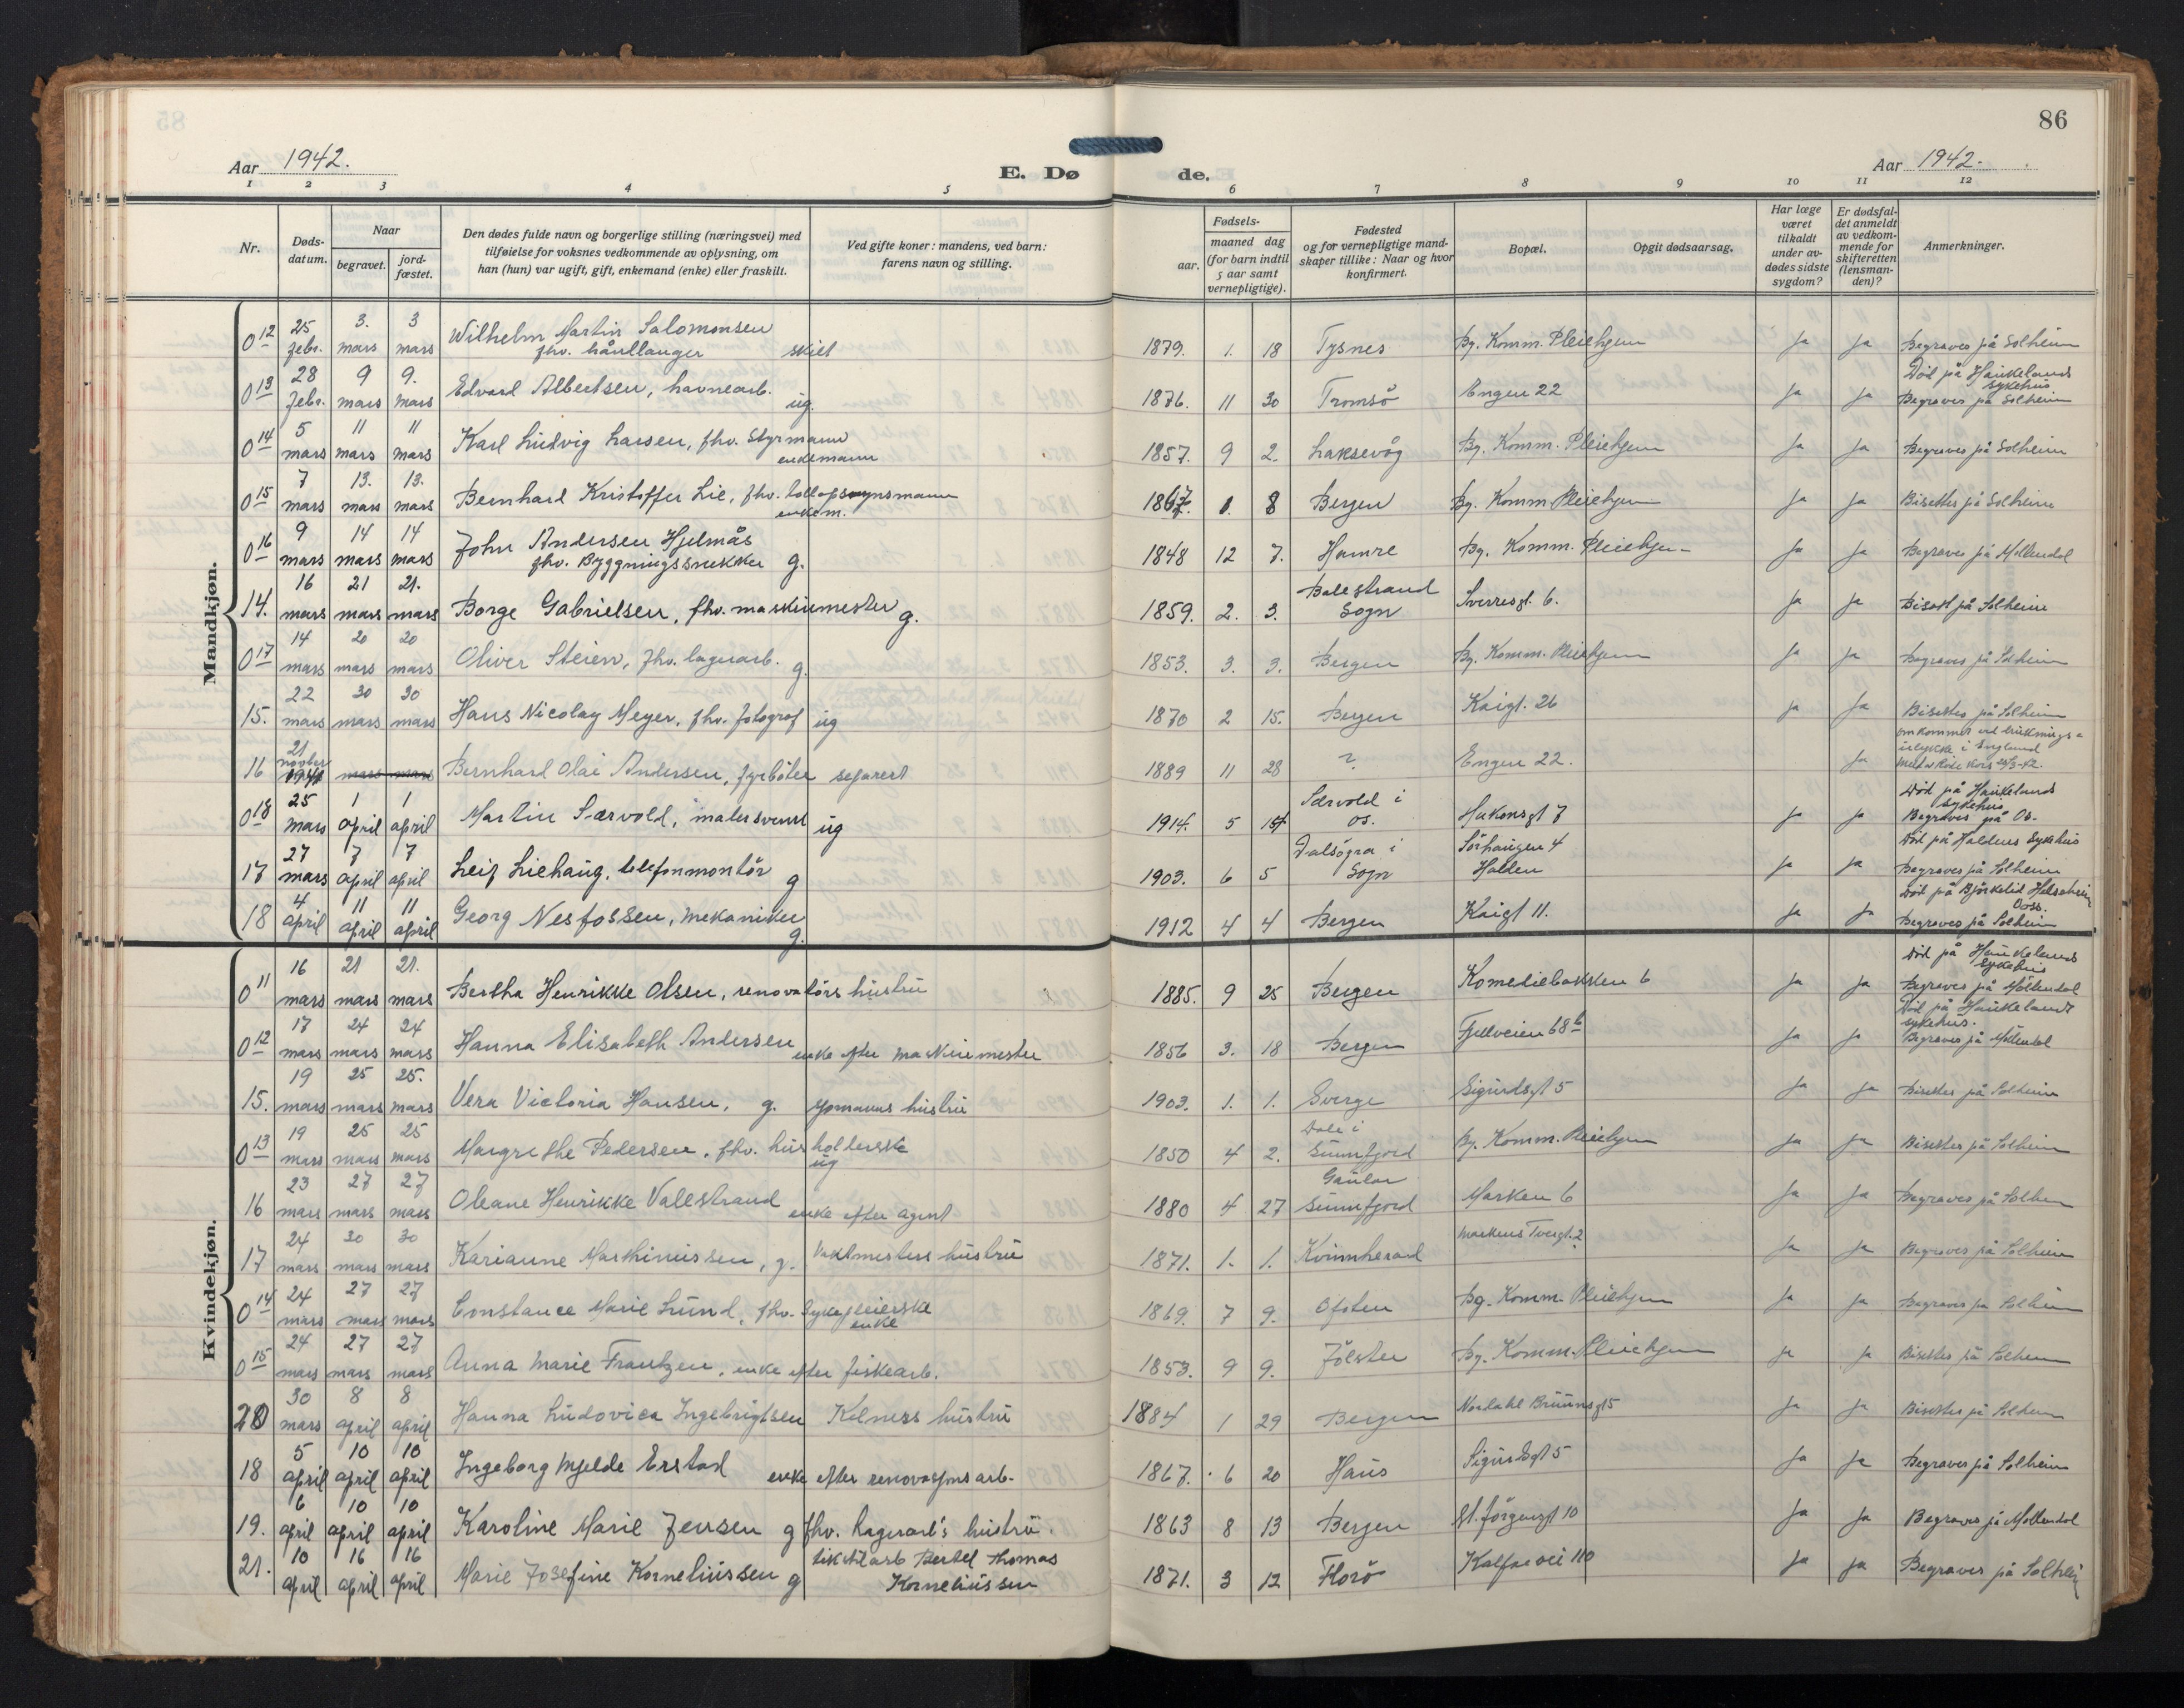 86
Aar 1942.
E. Dø
de.
Aar 1942.
1 2 3 4 5 6 7 8 9 10 11 12
Nr.
Døds-
datum.
Naar
begravet.
jord-
fæstet.
Den dødes fulde navn og borgerlige stilling (næringsvei) med
tilføielse for voksnes vedkommende av oplysning, om
han (hun) var ugift, gift, enkemand (enke) eller fraskilt.
Ved gifte koner: mandens, ved barn:
farens navn og stilling.
Fødsels-
aar.
maaned dag
(for barn indtil
5 aar samt
vernepligtige).
Fødested
og for vernepligtige mand-
skaper tillike: Naar og hvor
konfirmert.
Bopæl.
Opgit dødsaarsag.
Har læge
været
tilkaldt
under av-
dødes sidste
sygdom?
Er dødsfal-
det anmeldt
av vedkom-
mende for
skifteretten
(lensman-
den)?
Anmerkninger.
Mandkjøn.
0 12 25 febr. 3. mars 3 mars Wilhelm Martin Salomonsen
fhv. hånllanger skilt 1879. 1. 18 Tysnes Bg. Komm. Pleiehjem Ja Ja Begraves på Solheim
0 13 28 febr. 9 mars 9. mars Edvard Albertsen, havnearb. ug. 1876. 11 30 Tromsö Engen 22 Ja Ja Död på Haukelands
sykehus
Begraves på Solheim
0 14 5 mars 11 mars 11 mars Karl Ludvig Larsen, fhv. Styrmann
enkemann 1857. 9 2. Laksevåg Bg. Komm. Pleiehjem Ja Ja Begraves på Solheim
0 15 7 mars 13. mars 13. mars Bernhard Kristoffer Lie, fhv. tollopsynsmann
enkem. 1867. 1. 8 Bergen Bg. Komm. Pleiehjem Ja Ja Bisettes på Solheim
0 16 9 mars 14 mars 14 mars John Andersen Hjelmås
fhv. Byggningssnekker g. 1848 12 7. Hamre Bg. Komm. Pleiehjem Ja Ja Begraves på Möllendal
14. 16 mars 21 mars 21. mars Borge Gabrielsen, fhv. maskinmester g. 1859. 2. 3. Balestrand
Sogn Sverresgt. 6. Ja Ja Bisatt på Solheim
0 17 14 mars 20 mars 20 mars Oliver Steien, fhv. lagerarb. g. 1853. 3. 3. Bergen Bg. Komm. Pleiehjem Ja Ja Begraves på Solheim
15. 22 mars 30 mars 30 mars Hans Nicolay Meyer, fhv. fotograf ug 1870 2 15. Bergen Kaigt. 26 Ja Ja Bisettes på Solheim
16 21 novbr 1941 mars mars Bernhard Olai Andersen, fyrböter separert 1889 11 28 ? Engen 22. Ja omkommet ved
ulykke i England
0 18 25 mars 1 april 1 april Martin Særvold, malersvenn ug 1914. 5 15 Særvold i
Os. Hakonsgt 7 Ja Ja Död på Haukelands
sykehus
Begraves på Os.
17 27 mars 7 april 7 april Leif Liehaug, telefonmontör g 1903. 6 5 Dalsögra i
Sogn Sörhaugen 4
Halden Ja Ja Död på Haldens Sykehus
Begraves på Solheim
18 4 april 11 april 11 april Georg Nesfossen, mekaniker g. 1912 4 4 Bergen Kaigt 11. Ja Ja Död på Björkelid Helseheim
Voss.
Begraves på Solheim
Kvindekjøn.
0 11 16 mars 21 mars 21. mars Bertha Henrikke Olsen, renovatörs hustru 1885. 9 25 Bergen Komediebakken 6 Ja Ja Död på Haukelands
Sykehus
Begraves på Möllendal
0 12 17 mars 24 mars 24 mars Hanna Elisabeth Andersen enke efter maskinmester 1856 3. 18 Bergen Fjellveien 68 b Ja Ja Död på Haukelands
sykehus.
Begraves på Möllendal
15. 19 mars 25 mars 25. mars Vera Victoria Hansen, g. sjömanns hustru 1903. 1. 1. Sverge Sigurdsgt 5 Ja Ja Bisettes på Solheim
0 13 19 mars 25 mars 25 mars Margrethe Pedersen, fhv. husholderske
ug 1850 4 2. Dale i
Sunnfjord Bg. Komm. Pleiehjem Ja Ja Bisettes på Solheim
16 23 mars 27 mars 27 mars Oleane Henrikke Valestrand enke efter agent 1880 4 27 Gaular
Sunnfjord Marken 6 Ja Ja Begraves på Solheim
17 24 mars 30 mars 30 mars Karianne Marthinussen, g. Vaktmesters hustru 1871. 1. 1. Kvinnherad Markens Tvergt. 2 Ja Ja Begraves på Solheim
0 14 24 mars 27 mars 27 mars Constance Marie Lund, fhv. Sykepleierske
enke 1869. 7 9. Ofoten Bg. Komm. Pleiehjem Ja Ja Begraves på Solheim
0 15 24 mars 27 mars 27 mars Anna Marie Frantzen, enke efter fiskearb. 1853. 9 9. Jölster Bg. Komm. Pleiehjem Ja Ja Bisettes på Solheim
20 30 mars 8 april 8 april Hanna Ludovica Ingebrigtsen Kelners hustru 1884 1 29 Bergen Nordahl Bruunsgt 5 Ja Ja Bisettes på Solheim
18 5 april 10 april 10 april Ingeborg Mjelde Erstad enke efter renovasjonsarb. 1867. 6 20 Haus Sigurdsgt 5 Ja Ja Begraves på Solheim
19. 6 april 10 april 10 april Karoline Marie Jensen g fhv. lagerarb's hustru. 1863 8 13 Bergen St. Jörgensgt 10 Ja Ja Begraves på Möllendal
21. 10 april 16 april 16 april Marie Josefine Kornelinssen g tekstilarb Bertel Thomas
Korneliussen 1871. 3 12 Florö Kalfarvei 110 Ja Ja Begraves på Solheim